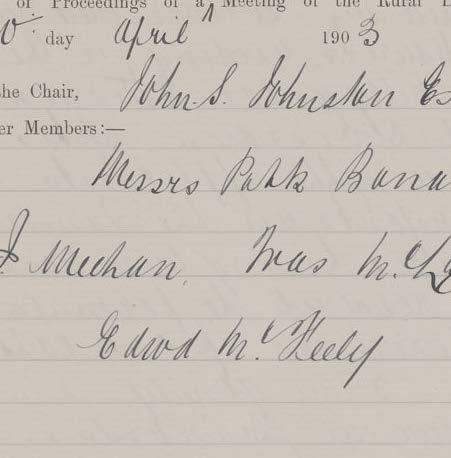 of Proceedings of a Meeting of the Rural
day April 1903
the Chair, John S. Johnston Es
er Members:—
Messrs Patk Bona
J Meehan, Thos McL
Edwd McFeely